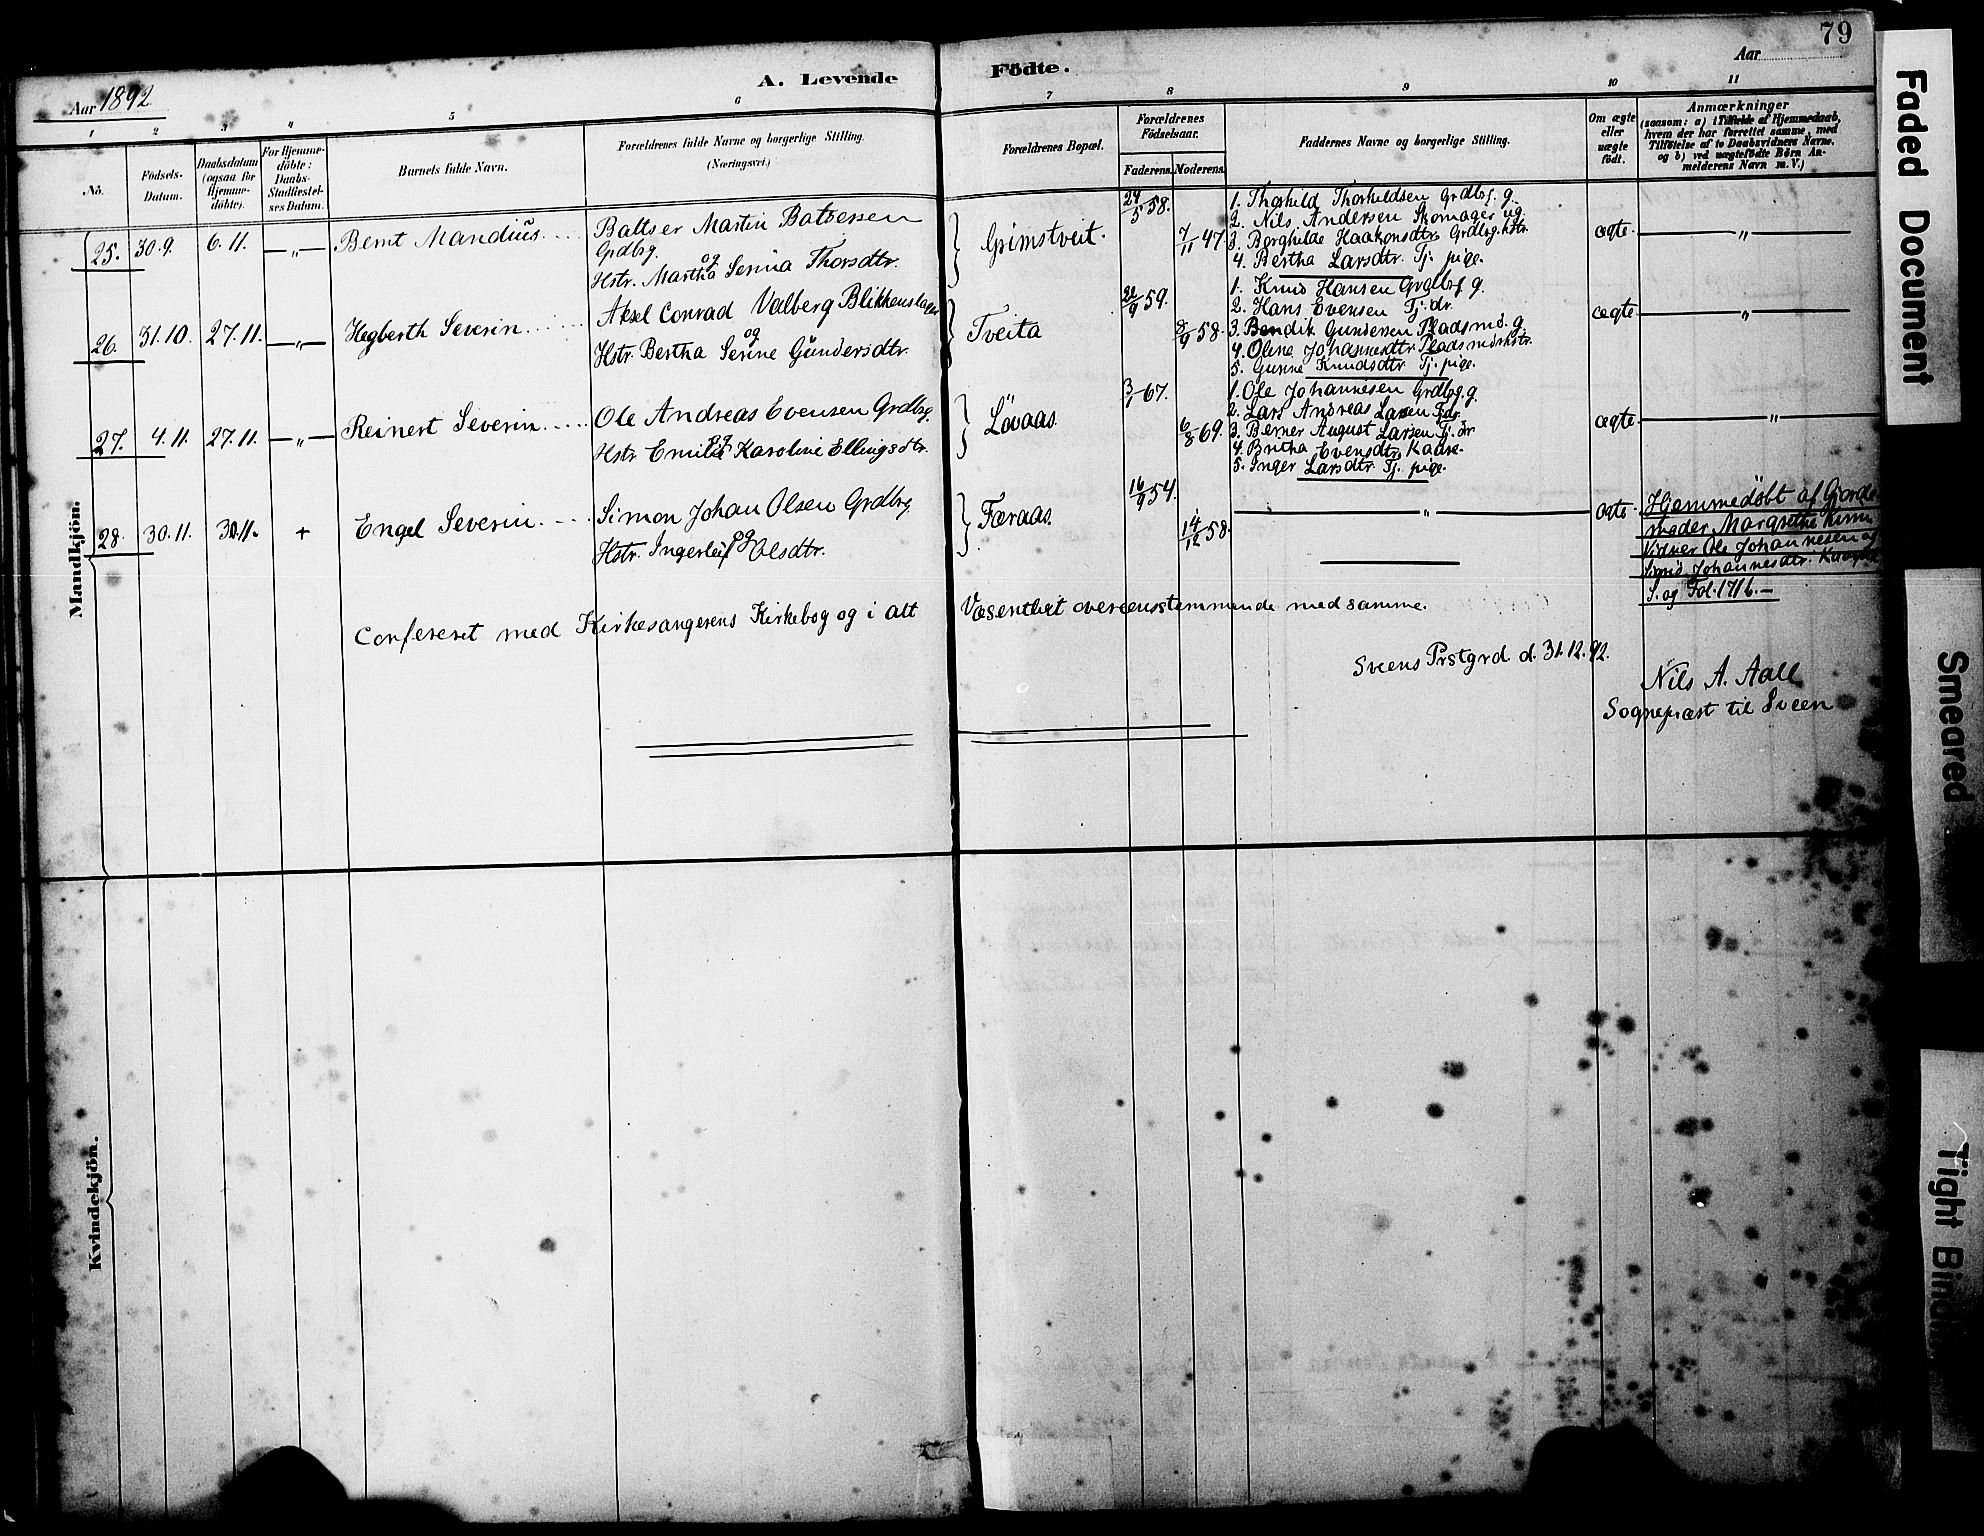 79
A. Levende Födte.
Aar 1892
Aar
1 2 3 4 5 6 7 8 9 10 11
No.
Födsels-
Datum.
Daabsdatum
(ogsaa for
Hjemme-
döbte).
For Hjemme-
döbte:
Daabs-
Stadfæstel-
ses Datum.
Barnets fulde Navn.
Forældrenes fulde Navne og borgerlige Stilling.
(Næringsvei.)
Forældrenes Bopæl.
Forældrenes
Födselsaar.
Faderens. Moderens.
Faddernes Navne og borgerlige Stilling.
Om ægte
eller
uægte
födt.
Anmærkninger
(saasom: a) i Tilfælde af Hjemmedaab,
hvem der har forrettet samme, med
Tilföielse af to Daabsvidners Navne,
og b) ved uægtefödte Börn An-
melderens Navn m. V.)
Mandkjön.
25. 30.9. 6.11. —„— Bernt Mandius.
Baltser Martin Batsersen
Grdbrg.
og
Hstr. Martha Serina Thorsdtr.
Grimstveit.
24/5 58.
7/11 47
1. Thorkild Thorkildsen Grdbrg. g.
2. Nils Andersen Skomager ug.
3. Borghilde Haakonsdtr. Grdbrg.kstr.
4. Bertha Larsdtr. Tj. pige.
ægte. —„—
26. 31.10. 27.11. —„— Hegberth Severin
Aksel Conrad Valberg Blikkenslager
og
Hstr. Bertha Serine Gundersdtr.
Tveita
22/9 59.
8/9 58.
1. Knud Hansen Grdbrg. g.
2. Hans Evensen Tj. dr.
3. Bendik Gundersen Pladsmd. g.
4. Oline Johannesdtr. Pladsmdskstr.
5. Gunne Knudsdtr. Tj. pige.
ægte. —„—
27. 4.11. 27.11. —„— Reinert Severin
Ole Andreas Evensen Grdbrg.
og
Hstr. Emilie Karoline Ellingsdtr.
Lövaas.
3/1 67.
6/8 69.
1. Ole Johannesen Grdbrg. g.
2. Lars Andreas Larsen Tj.dr.
3. Berner August Larsen Tj. dr
4. Britha Evensdtr. Kaarst.
5. Inger Larsdtr. Tj. pige.
ægte. —„—
28. 30.11. 30.11. + Engel Severin.
Simon Johan Olsen Grdbrg
og
Hstr. Ingerleif Olsdtr.
Færaas.
16/9 54.
14/12 58.
—„—
ægte.
Hjemmedöbt af Gjorde-
moder Margrethe
Vidner Ole Johannesen og
Sigrid Johannesdtr.
S. og Fol. 171 6.—
Confereret med Kirkesangerens Kirkebog og i alt Væsentligt overeensstemmende med samme.
Sveens Prstgrd d. 31.12.92.
Nils A. Aall
Sogneprest til Sveen
Kvindekjön.
Faded Document
Smeared
Tight Bindin